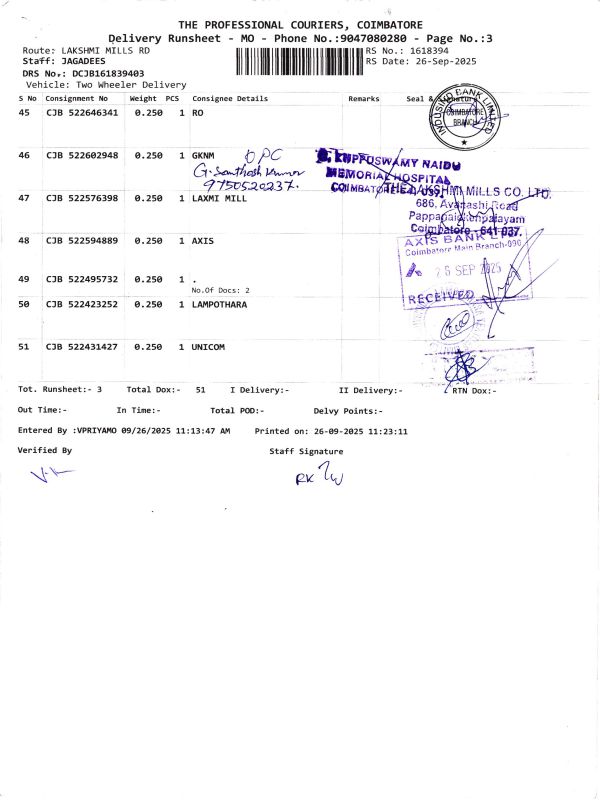 THE PROFESSIONAL COURIERS, COIMBATORE
Delivery Runsheet - MO - Phone No.:9047080280 - Page No.:3
Route: LAKSHMI MILLS RD
RS No.: 1618394
Staff: JAGADEES
RS Date: 26-Sep-2025
DRS No.: DCJB161839403
Vehicle: Two Wheeler Delivery
S No Consignment No Weight PCS Consignee Details Remarks Seal &
45 CJB 522646341 0.250 1 RO
INDUSIND BANK LIMITED
COIMBATORE
BRANCH
46 CJB 522602948 0.250 1 GKNM
OPC
G. Santhosh Kumar
9750520237.
G. KUPPUSWAMY NAIDU
MEMORIAL HOSPITAL
COIMBATORE-641 037.
47 CJB 522576398 0.250 1 LAXMI MILL
THE LAKSHMI MILLS CO. LTD.
686, Avanashi Road
Pappanaickenpalayam
Coimbatore - 641 037.
48 CJB 522594889 0.250 1 AXIS
AXIS BANK LTD.
Coimbatore Main Branch-096
26 SEP 2025
RECEIVED
49 CJB 522495732 0.250 1 .
No.Of Docs: 2
50 CJB 522423252 0.250 1 LAMPOTHARA
51 CJB 522431427 0.250 1 UNICOM
Tot. Runsheet:- 3 Total Dox:- 51 I Delivery:- II Delivery:- RTN Dox:-
Out Time:- In Time:- Total POD:- Delvy Points:-
Entered By :VPRIYAMO 09/26/2025 11:13:47 AM Printed on: 26-09-2025 11:23:11
Verified By Staff Signature